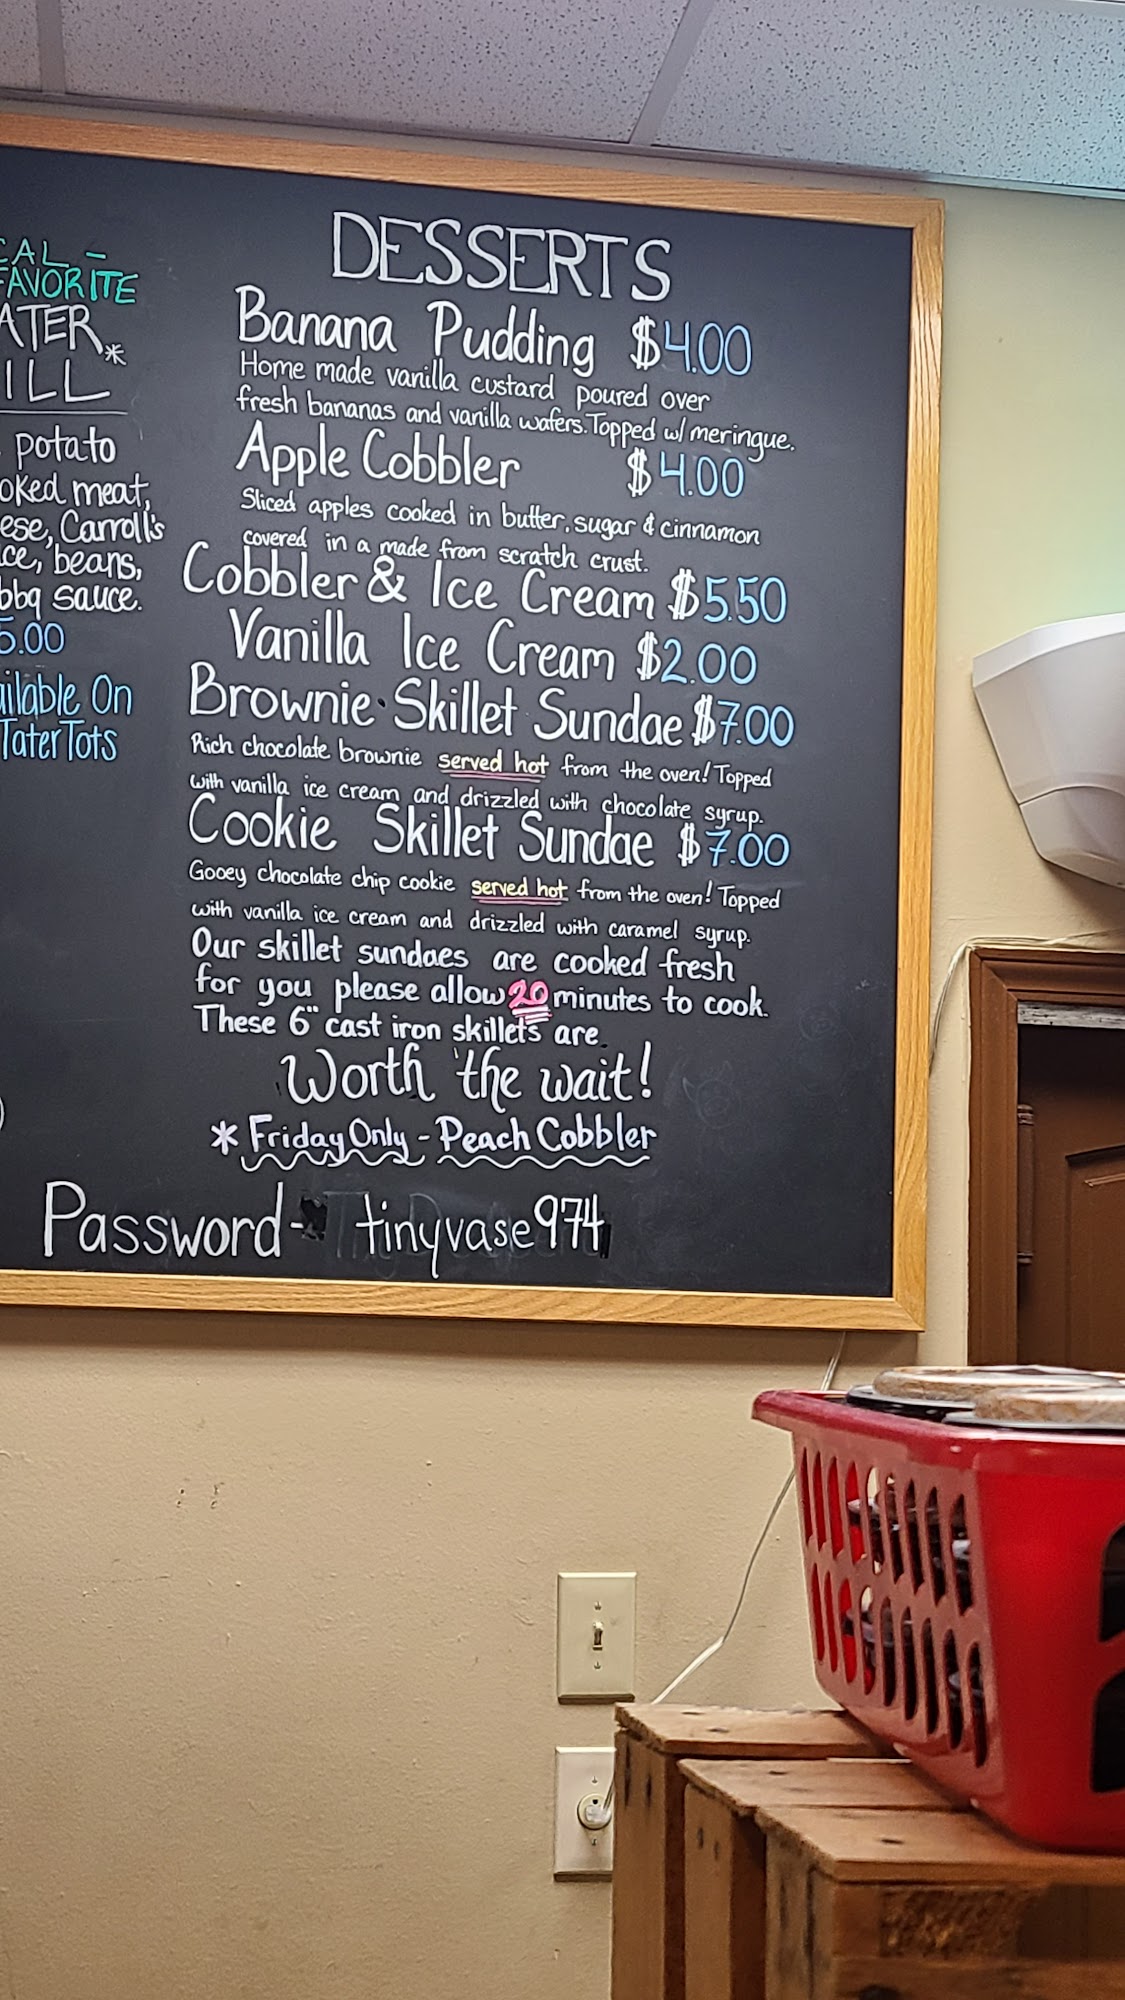 CAL -
FAVORITE
ATER *
ILL
potato
oked meat,
ese, Carroll's
ce, beans,
bbq sauce.
5.00
ailable On
Tater Tots
DESSERTS
Banana Pudding $4.00
Home made vanilla custard poured over
fresh bananas and vanilla wafers. Topped w/ meringue.
Apple Cobbler $4.00
Sliced apples cooked in butter, sugar & cinnamon
covered in a made from scratch crust.
Cobbler & Ice Cream $5.50
Vanilla Ice Cream $2.00
Brownie Skillet Sundae $7.00
Rich chocolate brownie served hot from the oven! Topped
with vanilla ice cream and drizzled with chocolate syrup.
Cookie Skillet Sundae $7.00
Gooey chocolate chip cookie served hot from the oven! Topped
with vanilla ice cream and drizzled with caramel syrup.
Our skillet sundaes are cooked fresh
for you please allow 20 minutes to cook.
These 6" cast iron skillets are
Worth the wait!
* Friday Only - Peach Cobbler
Password- tinyvase974